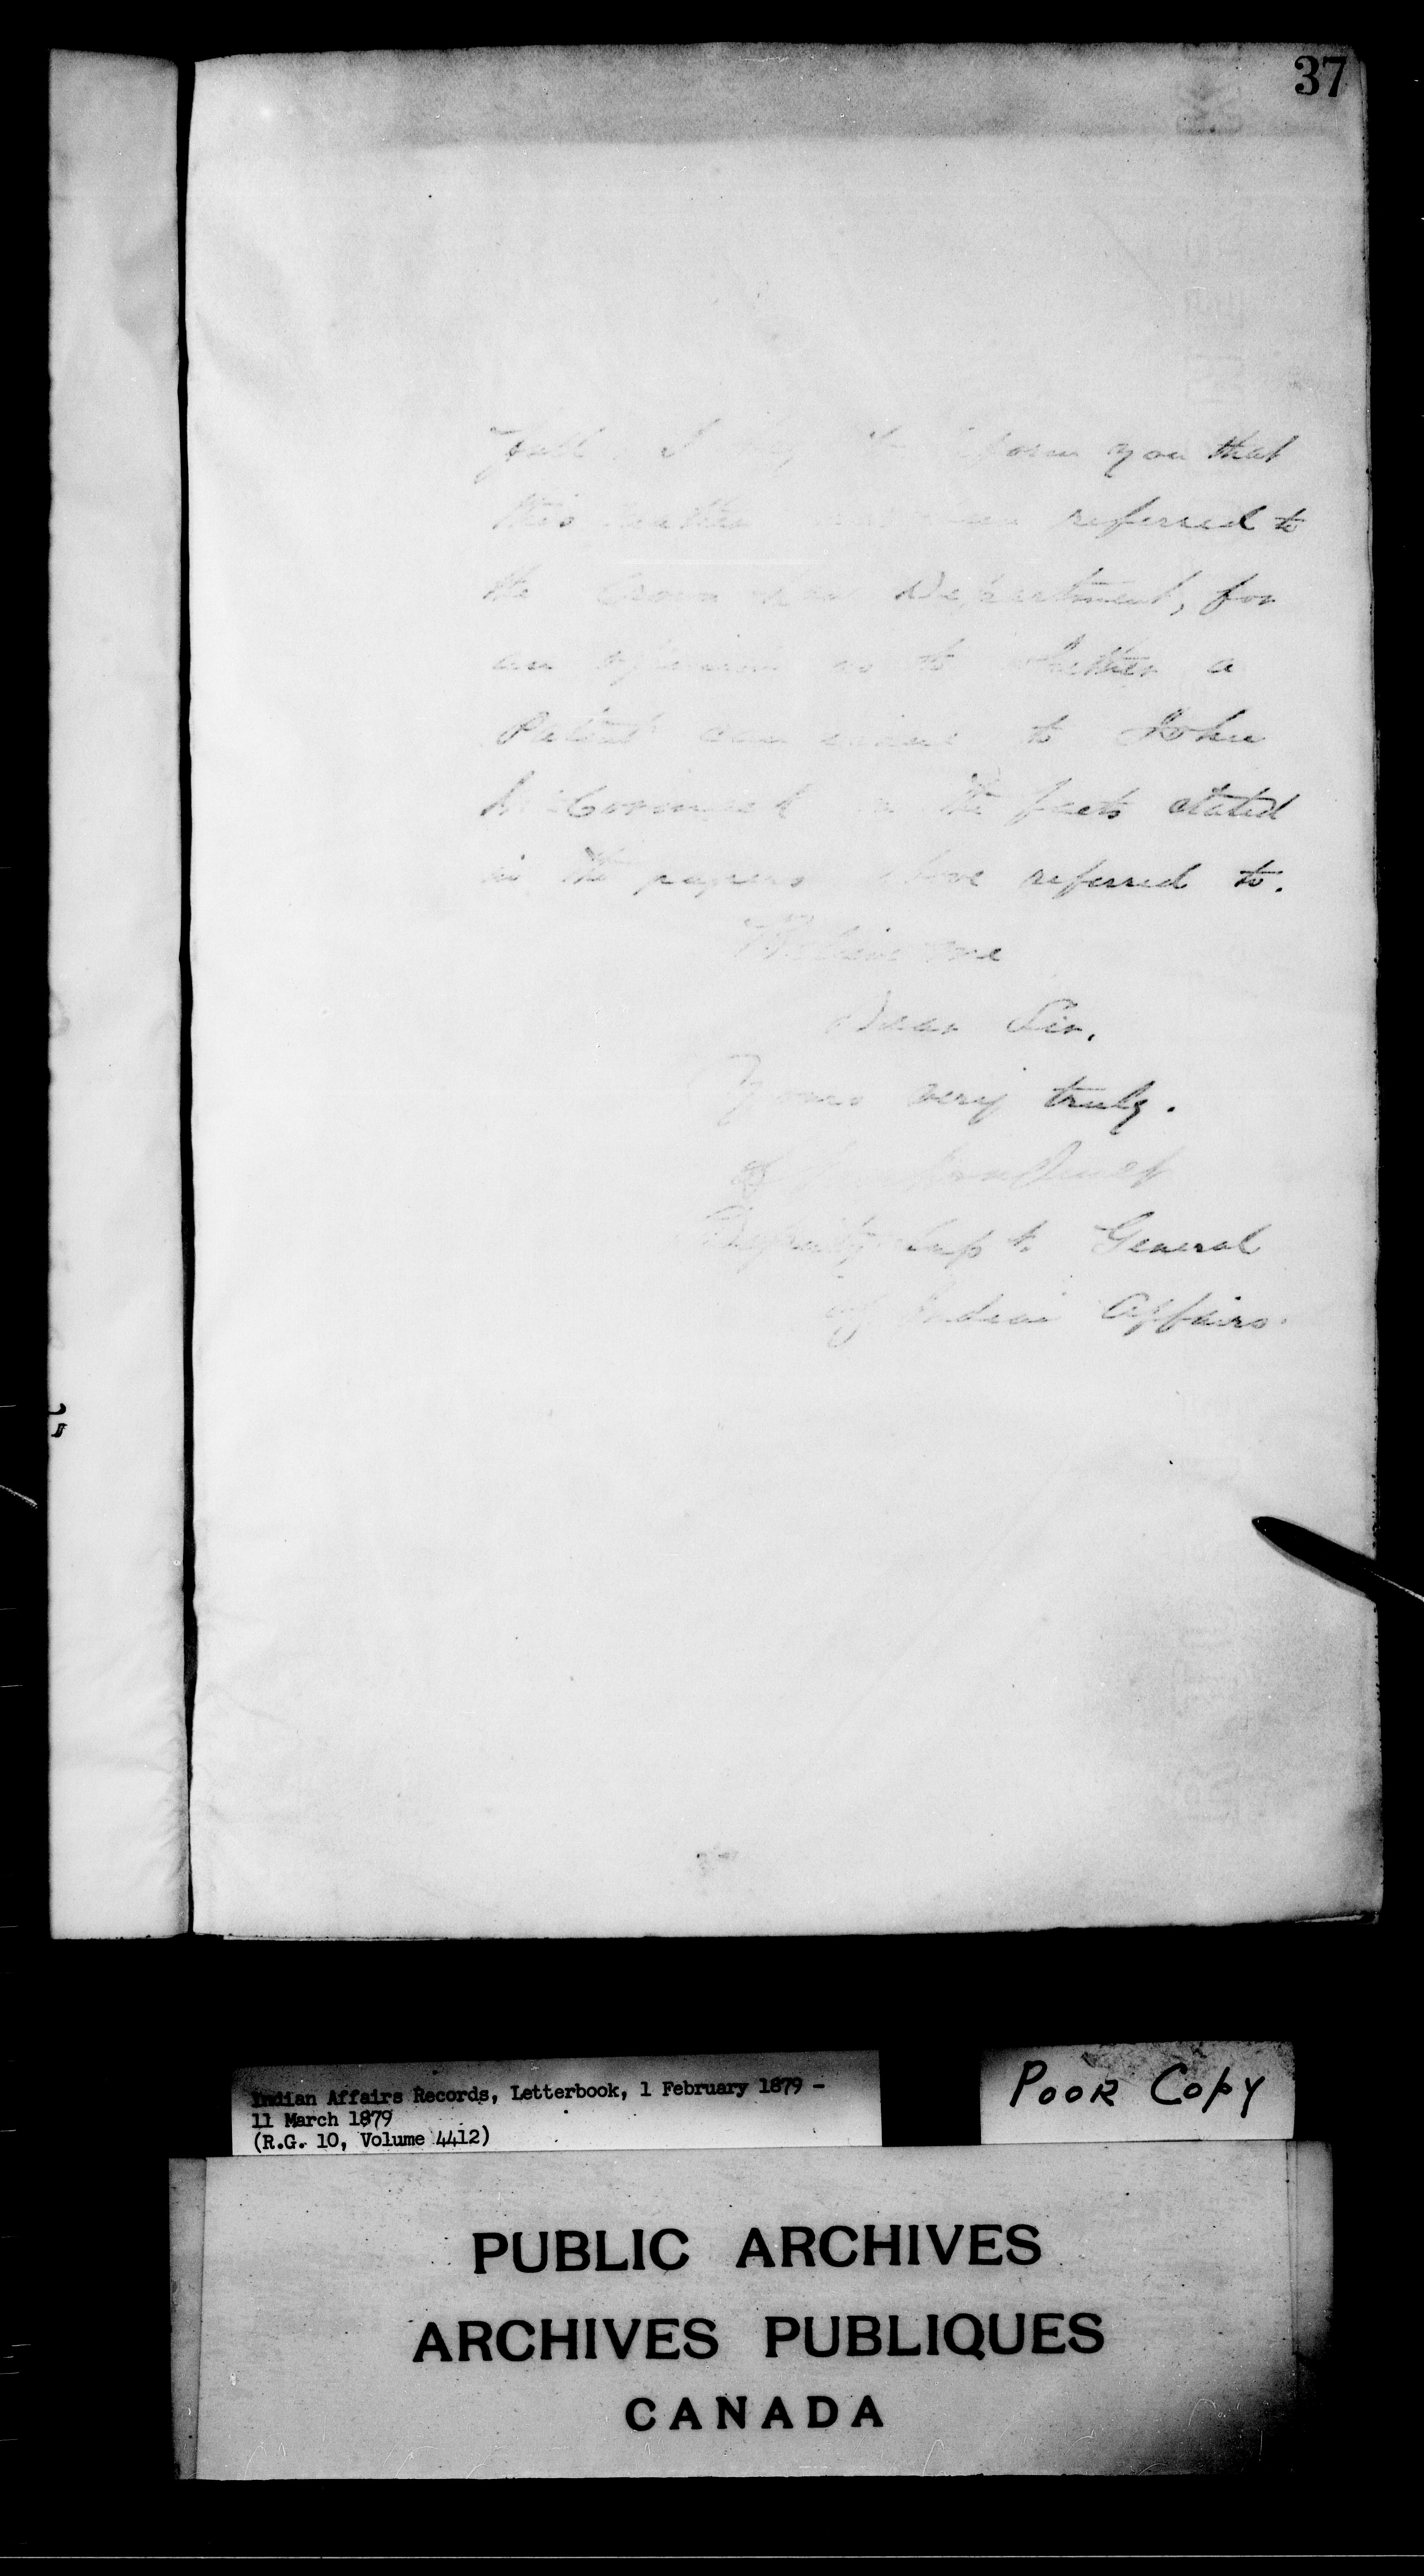 37
I you that
this referred to
the Crown Law Department, for
an opinion as to whether a
Patent can to John
McCormick the facts stated
in the papers above referred to.
Believe me
Dear Sir,
Yours very truly.
Deputy Supt. General
of Indian Affairs.
Indian Affairs Records, Letterbook, 1 February 1879 -
11 March 1879
(R.G. 10, Volume 4412)
POOR COPY
PUBLIC ARCHIVES
ARCHIVES PUBLIQUES
CANADA